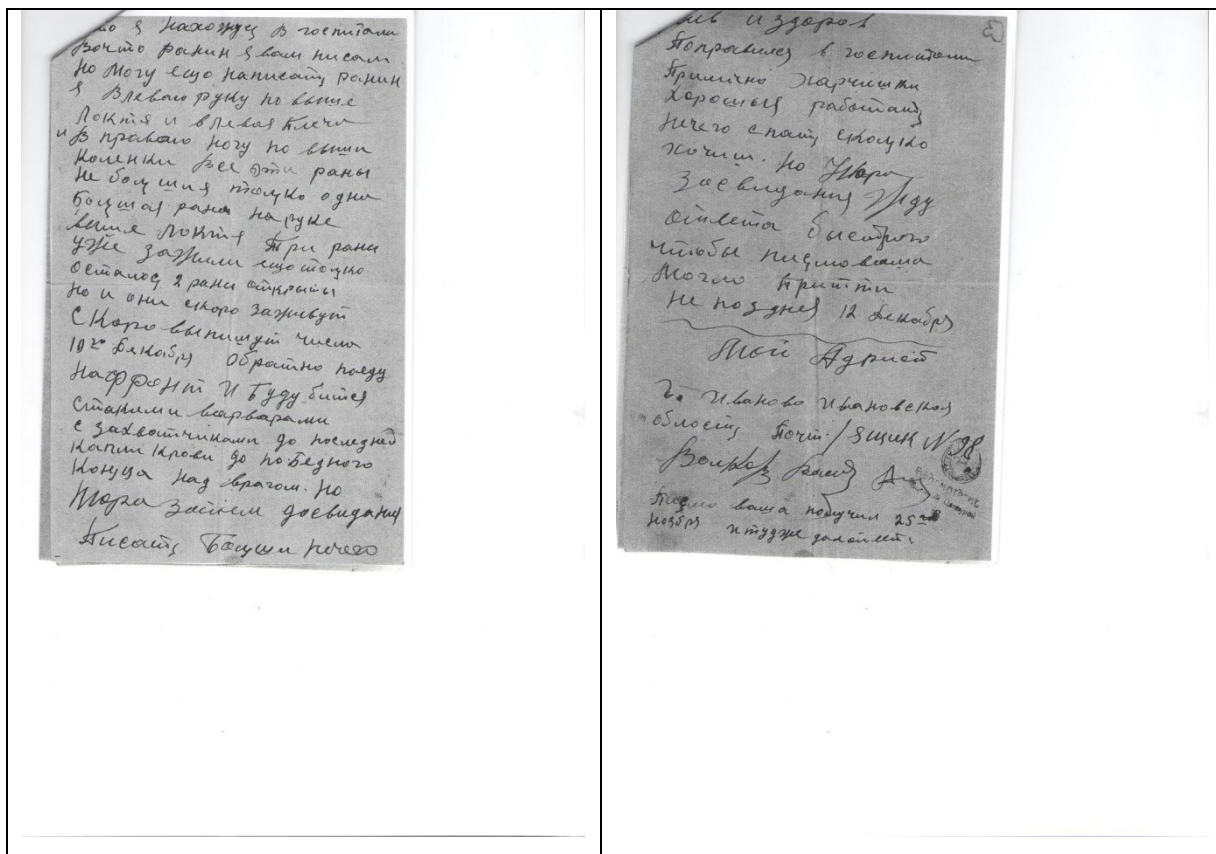 я нахожусь в госпитали
Вочто ранин я вам писал
но могу ещо написать ранин
я Влеваю руку по выше
Локтя и влевая плечо
и В праваю ногу по выши
Коленки Все эти раны
не большия только одна
Большая рана на руке
выше Локтя Три раны
уже зажили ещо только
осталось 2 раны открыты
но и они скоро заживут
Скоро выпишут числа
10го Декабря Обратно поеду
на фронт и Буду битса
стакими варварами
с захватчиками до последней
Капли Крови до победного
Конца над врагом. Но
Затем досвидания
Писать Больши нечего
и здоров
Поправился в госпитали
Примично харчишки
Хорошыя работать
нечего спать сколько
хочиш. но
Досвидания Жду
ответа быстрого
чтобы письмо ваша
Могло Притти
не поздня 12 Декабря
Мой Адрист
г. Иваново Ивановская
область Почт. / ящик № 98
Волков
Письмо ваша получил 25го
Ноября